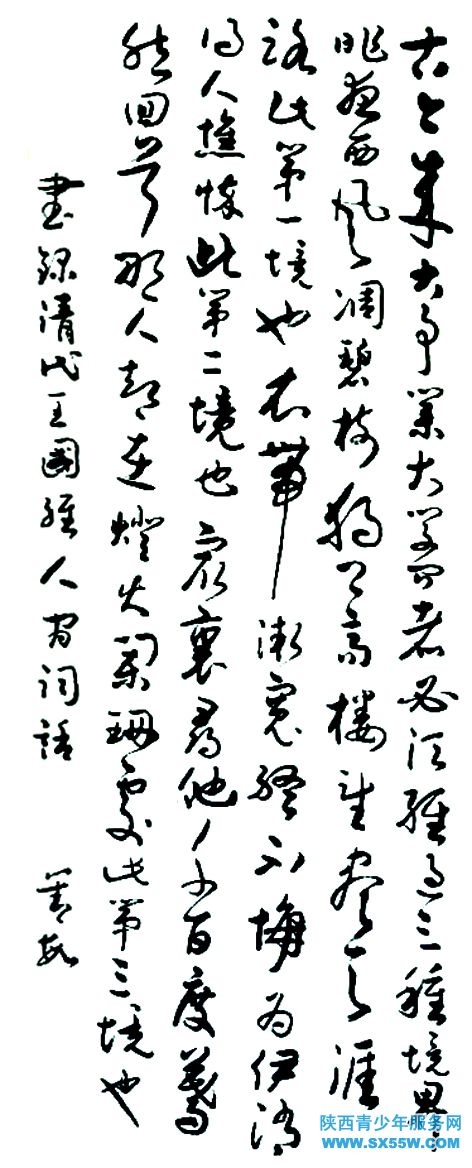 古今来大事業大学问者必须經过三種境界
昨夜西风凋碧树独上高楼望尽天涯
路此第一境也衣帶漸寬終不悔为伊消
得人憔悴此第二境也衆裏尋他千百度蓦
然回首那人卻在燈火闌珊處此第三境也
書錄清代王國維人间词话
陕西青少年服务网
www.sx55w.com